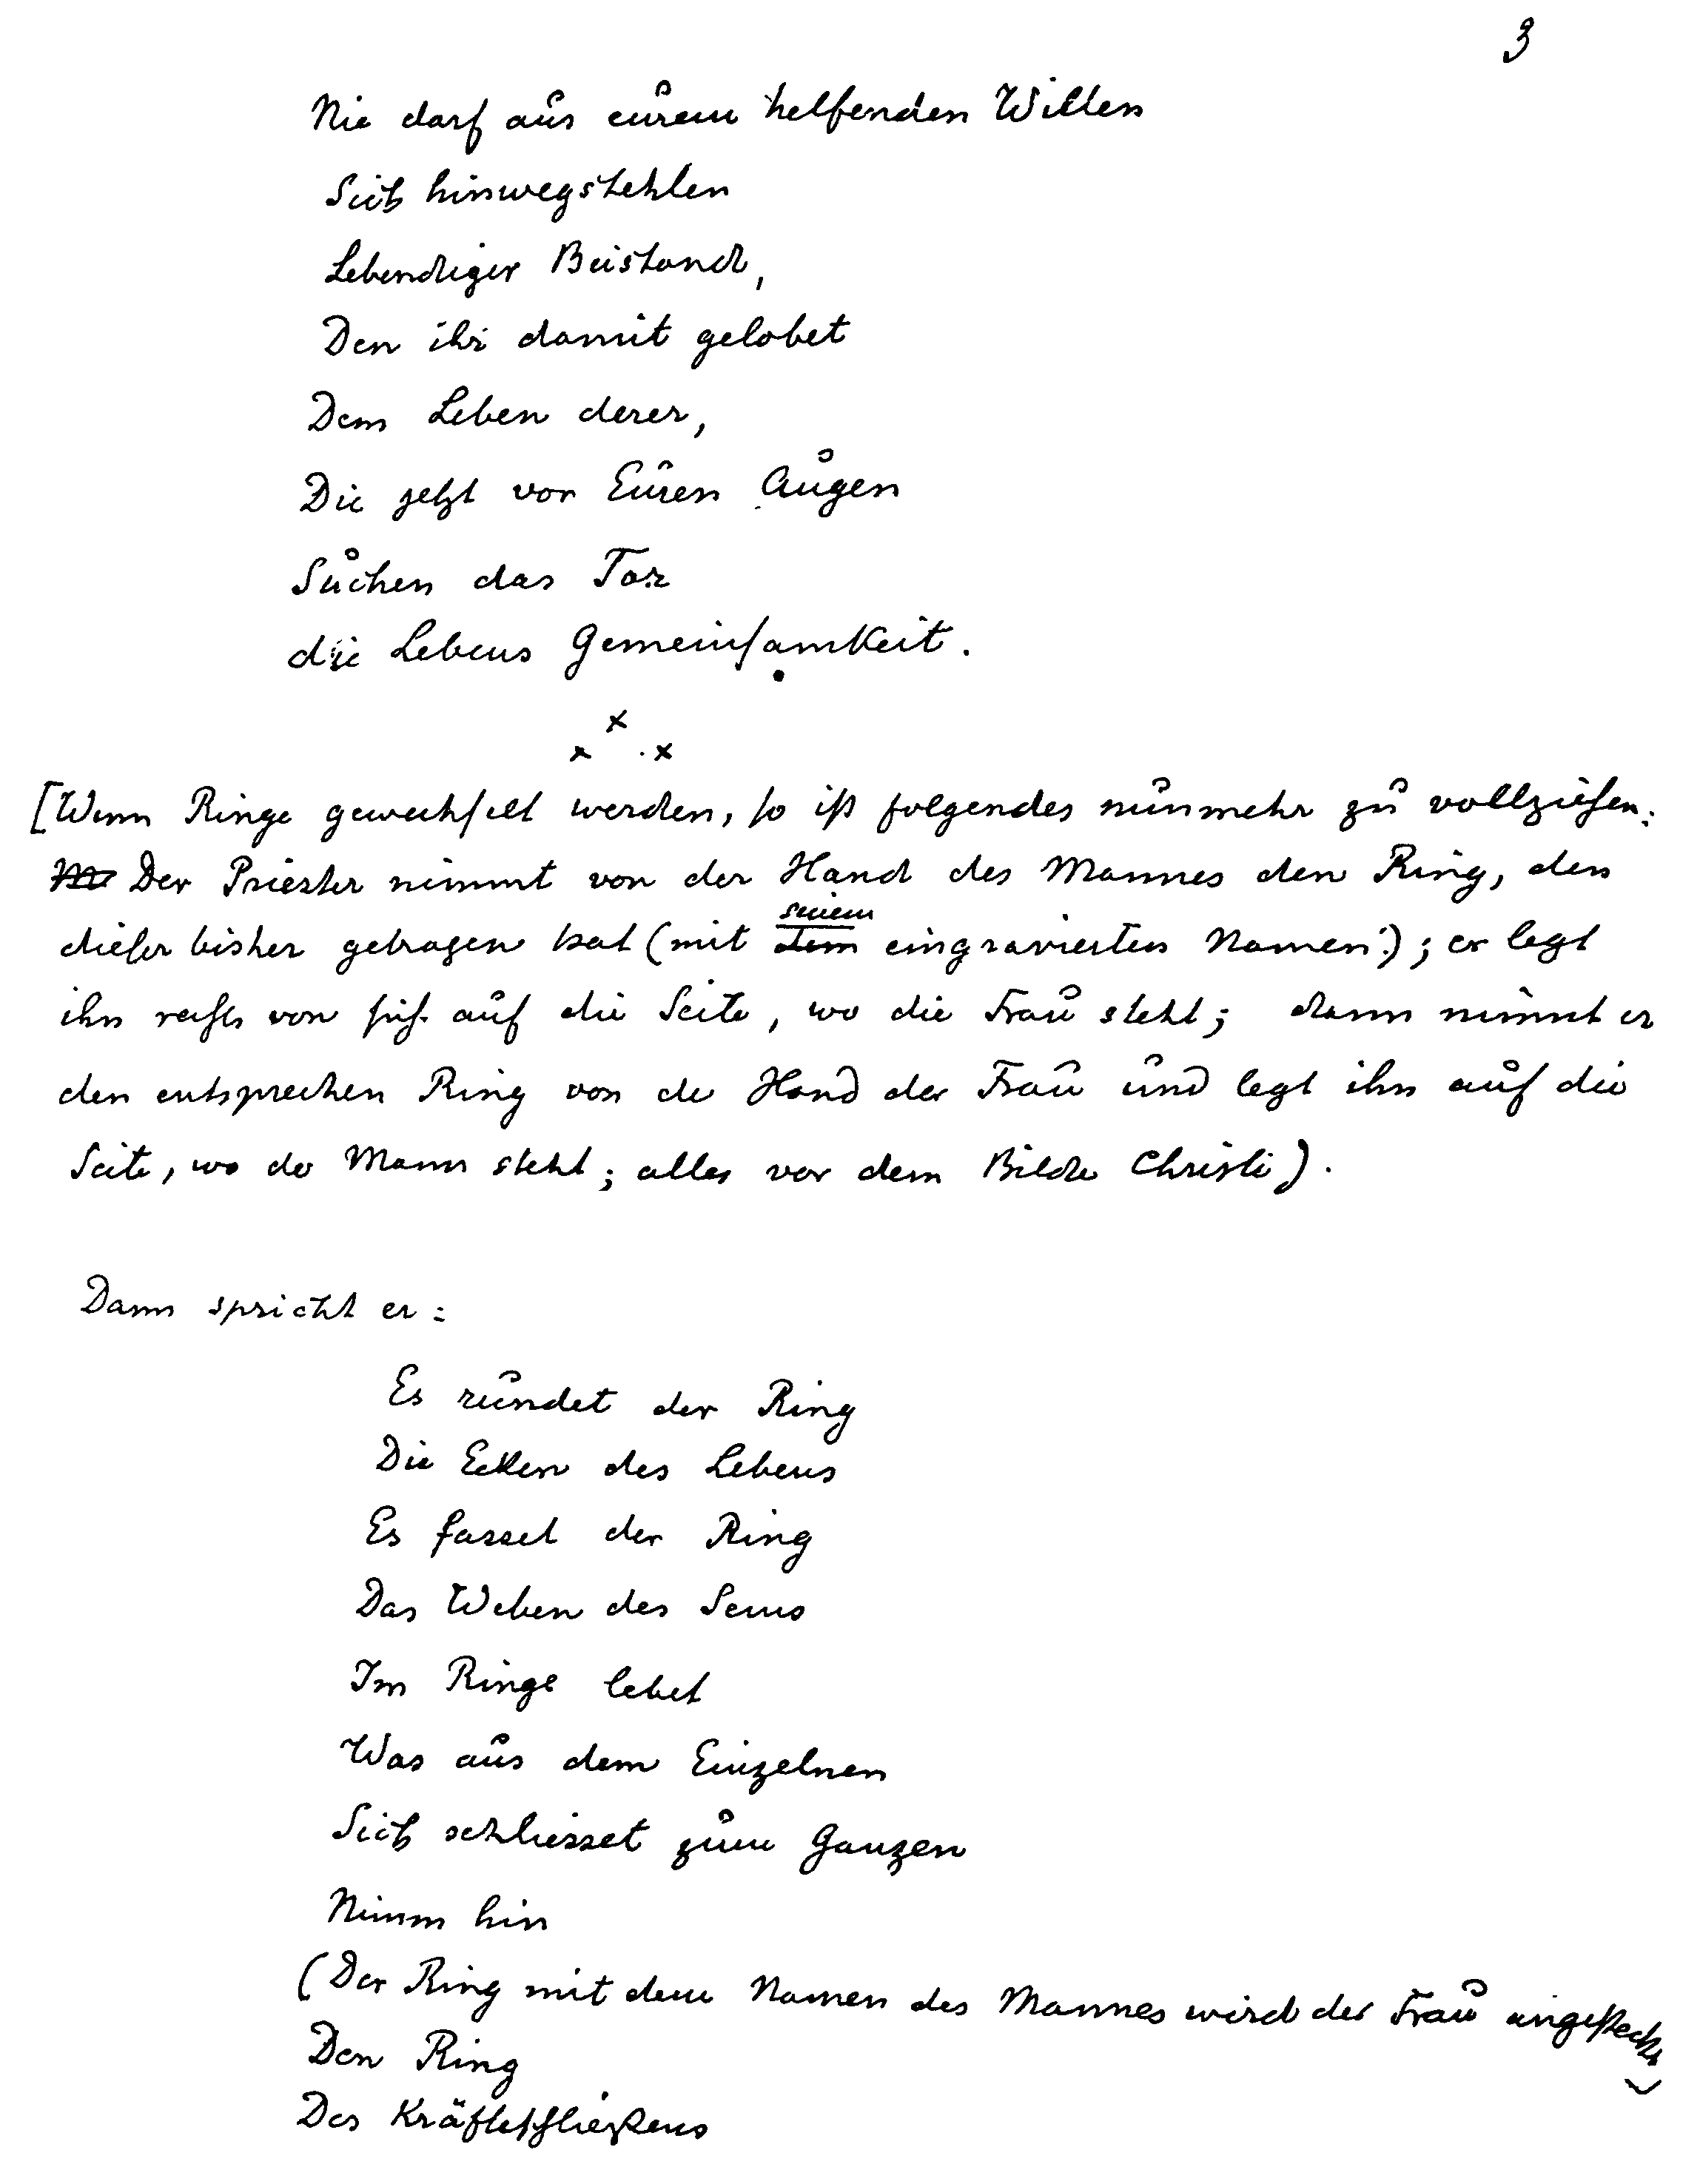 3
Nie darf aus eurem helfenden Willen
Sich hinwegstehlen
Lebendiger Beistand,
Den ihr damit gelobet
Dem Leben derer,
Die jetzt vor Euren Augen
Suchen das Tor
die Lebens Gemeinsamkeit.
x
x x
[Wenn Ringe gewechselt werden, so ist folgendes nunmehr zu vollziehen:
Der Priester nimmt von der Hand des Mannes den Ring, den
seinem
dieser bisher getragen hat (mit dem eingravierten Namen:); er legt
ihn rechts von sich auf die Seite, wo die Frau steht; dann nimmt er
den entsprechen Ring von der Hand der Frau und legt ihn auf die
Seite, wo der Mann steht; alles vor dem Bilde Christi).
Dann spricht er:
Es rundet der Ring
Die Ecken des Lebens
Es fasset der Ring
Das Weben des Seins
Im Ringe lebet
Was aus dem Einzelnen
Sich schliesset zum Ganzen
Nimm hin
(Der Ring mit dem Namen des Mannes wird der Frau angesteckt)
Den Ring
Des Kräftefließens